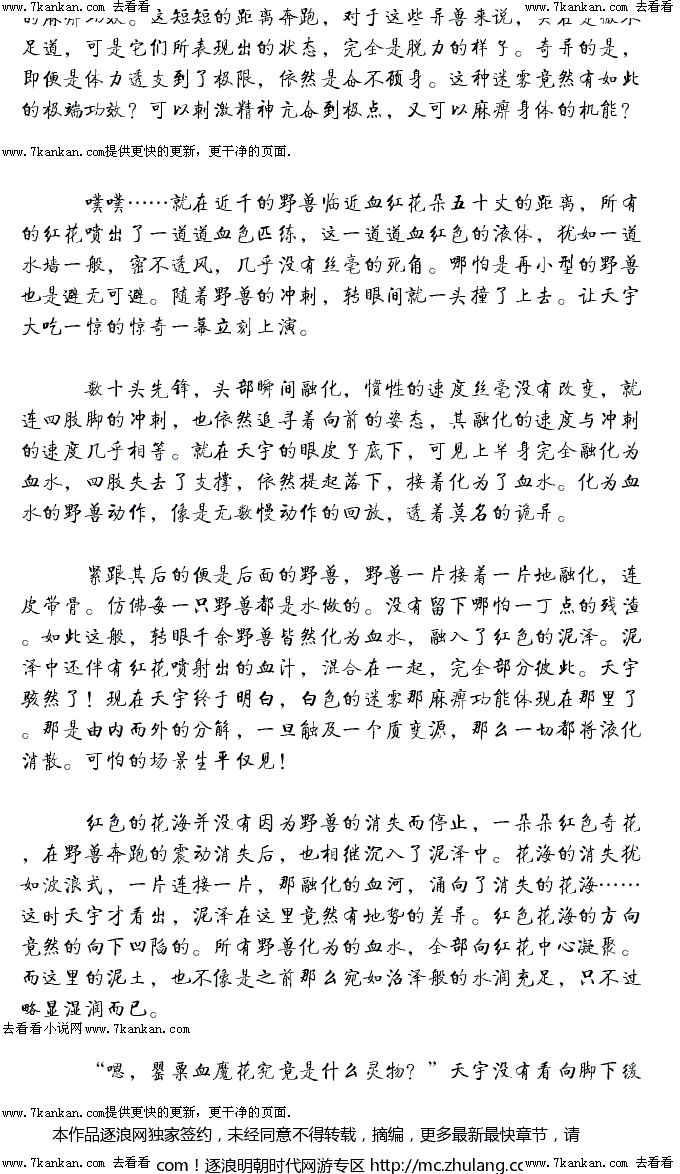 www.7kankan.com 去看看 www.7kankan.com 去看看 www.7kankan.com 去看看 www.7kankan.com 去看看
的麻痹功效。这短短的距离奔跑，对于这些异兽来说，实在是微不
足道，可是它们所表现出的状态，完全是脱力的样子。奇异的是，
即便是体力透支到了极限，依然是奋不顾身。这种迷雾竟然有如此
的极端功效？可以刺激精神亢奋到极点，又可以麻痹身体的机能？
www.7kankan.com提供更快的更新，更干净的页面.
噗噗……就在近千的野兽临近血红花朵五十丈的距离，所有
的红花喷出了一道道血色匹练，这一道道血红色的液体，犹如一道
水墙一般，密不透风，几乎没有丝毫的死角。哪怕是再小型的野兽
也是避无可避。随着野兽的冲刺，转眼间就一头撞了上去。让天宇
大吃一惊的惊奇一幕立刻上演。
数十头先锋，头部瞬间融化，惯性的速度丝毫没有改变，就
连四肢脚的冲刺，也依然追寻着向前的姿态，其融化的速度与冲刺
的速度几乎相等。就在天宇的眼皮子底下，可见上半身完全融化为
血水，四肢失去了支撑，依然提起落下，接着化为了血水。化为血
水的野兽动作，像是无数慢动作的回放，透着莫名的诡异。
紧跟其后的便是后面的野兽，野兽一片接着一片地融化，连
皮带骨。仿佛每一只野兽都是水做的。没有留下哪怕一丁点的残渣
。如此这般，转眼千余野兽皆然化为血水，融入了红色的泥泽。泥
泽中还伴有红花喷射出的血汁，混合在一起，完全部分彼此。天宇
骇然了！现在天宇终于明白，白色的迷雾那麻痹功能体现在那里了
。那是由内而外的分解，一旦触及一个质变源，那么一切都将液化
消散。可怕的场景生平仅见！
红色的花海并没有因为野兽的消失而停止，一朵朵红色奇花
，在野兽奔跑的震动消失后，也相继沉入了泥泽中。花海的消失犹
如波浪式，一片连接一片，那融化的血河，涌向了消失的花海……
这时天宇才看出，泥泽在这里竟然有地势的差异。红色花海的方向
竟然的向下凹陷的。所有野兽化为的血水，全部向红花中心凝聚。
而这里的泥土，也不像是之前那么宛如沼泽般的水润充足，只不过
略显湿润而已。
去看看小说网www.7kankan.com
“嗯，罂粟血魔花究竟是什么灵物？”天宇没有看向脚下缓
www.7kankan.com提供更快的更新，更干净的页面.
本作品逐浪网独家签约，未经同意不得转载，摘编，更多最新最快章节，请
www.7kankan.com 去看看 com！逐浪明朝时代网游专区 http://mc.zhulang.co www.7kankan.com 去看看